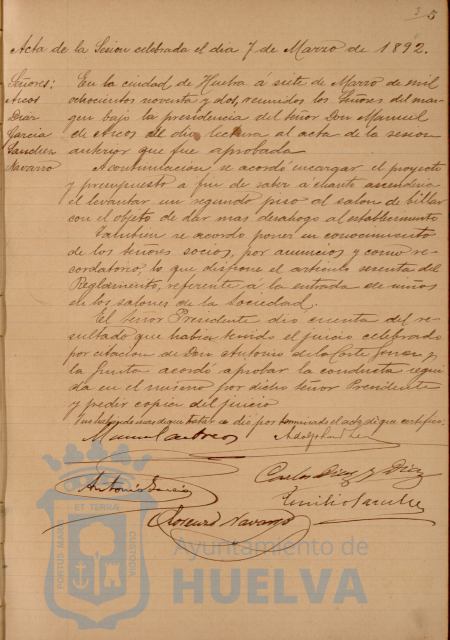 3 5
Acta de la Sesion celebrada el dia 7 de Marzo de 1892.
Señores:
Arcos
Diaz
Garcia
Sanchez
Navarro
En la ciudad de Huelva á siete de Marzo de mil
ochocientos noventa y dos, reunidos los Señores del mar-
gen bajo la presidencia del Señor Don Manuel
de Arcos se dio lectura al acta de la sesion
anterior que fue aprobada
A continuacion se acordó encargar el proyecto
y presupuesto a fin de saber á cuanto ascenderia
el levantar un segundo piso al salon de billar
con el objeto de dar mas desahogo al establecimiento
Tambien se acordo poner en conocimiento
de los señores socios, por anuncios y como re-
cordatorio, lo que dispone el articulo sesenta del
Reglamento, referente a la entrada de niños
en los salones de la Sociedad.
El Señor Presidente dio cuenta del re-
sultado que habia tenido el juicio celebrado
por citacion de Don Antonio de la Corte y
la Junta acordó aprobar la conducta segui-
da en el mismo por dicho Señor Presidente
y pedir copia del juicio
no habiendo mas de que tratar se dio por terminado el acto de que certifico.
Manuel de Arcos
Adolfo Sanchez
Antonio Garcia
Carlos Diaz y Diaz
Emilio Sanchez
Lorenzo Navarro
ET TERRAE
PORTUS MARIS
CUSTODIA
Ayuntamiento de
HUELVA